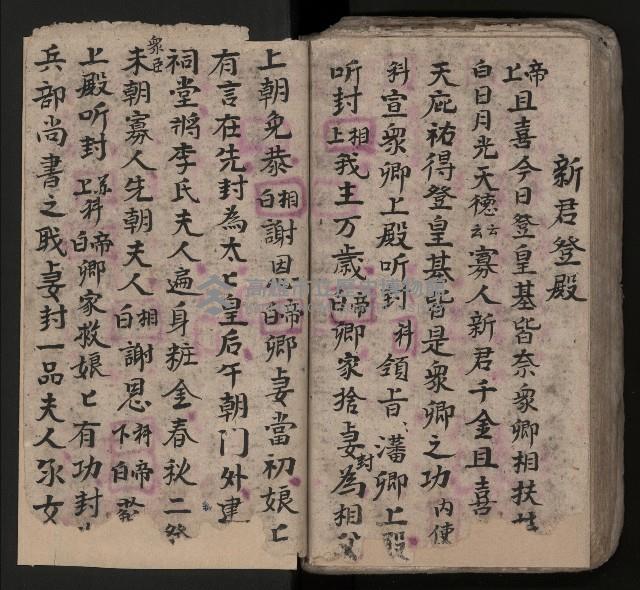 新君登殿
帝上且喜今日登皇基皆奈衆卿相扶
白日月光天德云云寡人新君千金且喜
天庇祐得登皇基皆是衆卿之功內使
科宣衆卿上殿听封科領旨潘卿上殿
听封相上我主万歲帝白卿家捨妻封為相父
上朝免恭相白謝因帝白卿妻當初娘匕
有言在先封為太匕皇后午朝门外建
祠堂將李氏夫人遍身粧金春秋二祭
衆臣未朝寡人先朝夫人相白謝恩科下帝白
上殿听封科上帝白卿家救娘匕有功封
兵部尚書之戢妻封一品夫人